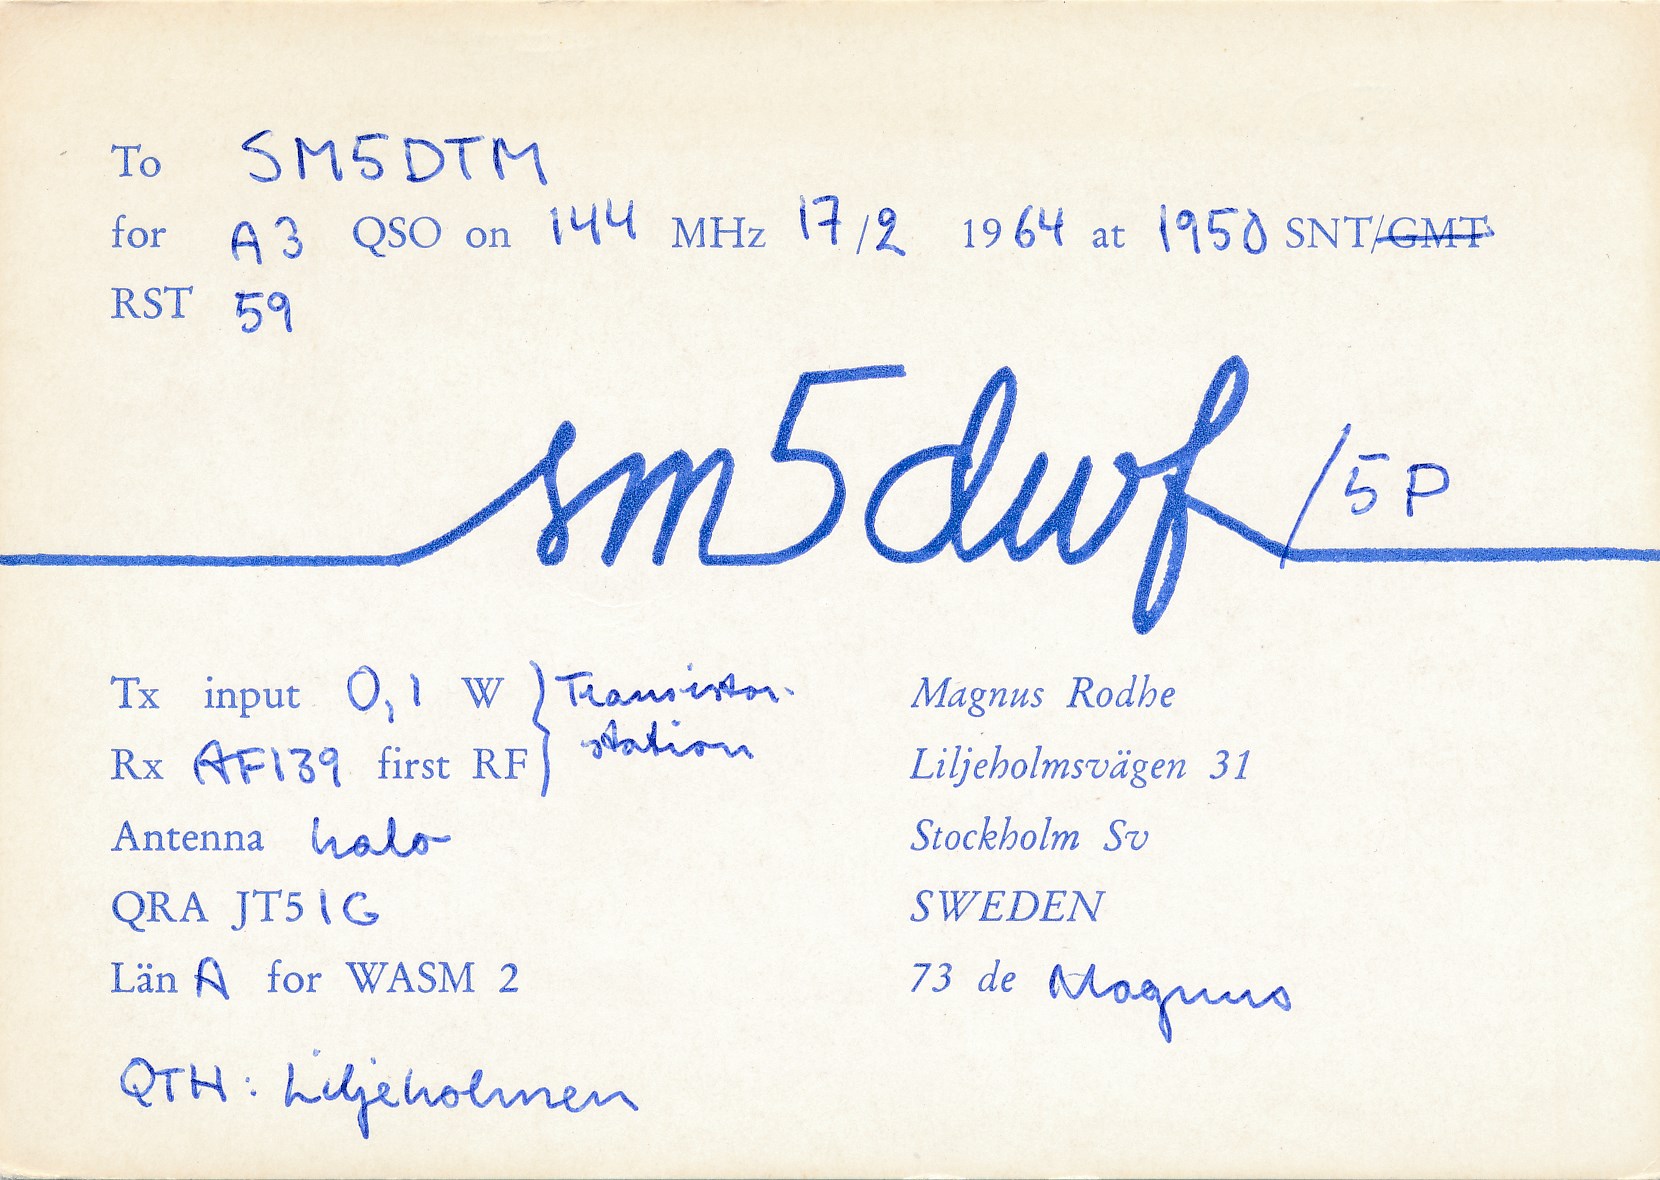 To SM5DTM
for A3 QSO on 144 MHz 17/2 1964 at 1950 SNT/GMT
RST 59
sm5dwf /5P
Tx input 0,1 W } Transistor-
station
Rx AF139 first RF
Antenna halo
QRA JT51G
Län A for WASM 2
QTH: Liljeholmen
Magnus Rodhe
Liljeholmsvägen 31
Stockholm Sv
SWEDEN
73 de Magnus